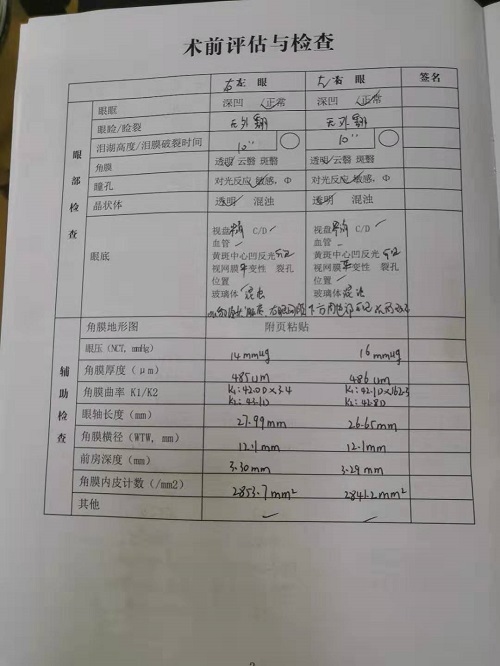 术前评估与检查
右左 眼 左右 眼 签名
眼部检查
眼眶 深凹 正常 深凹 正常
眼睑/睑裂 无外翻 无外翻
泪湖高度/泪膜破裂时间 10'' 10''
角膜 透明/云翳 斑翳 透明/云翳 斑翳
瞳孔 对光反应 敏感, Φ 对光反应 敏感, Φ
晶状体 透明 混浊 透明 混浊
眼底
视盘 C/D 视盘 C/D
血管 血管
黄斑中心凹反光 黄斑中心凹反光
视网膜 变性 裂孔 视网膜 变性 裂孔
位置 位置
玻璃体 混浊 玻璃体 混浊
辅助检查
角膜地形图 附页粘贴
眼压(NCT, mmHg) 14mmHg 16mmHg
角膜厚度(μm) 485um 486um
角膜曲率 K1/K2 K1: 42.00×3.4 K1: 42.10×162.3
K2: 43.10 K2: 42.80
眼轴长度(mm) 27.99mm 26.65mm
角膜横径(WTW, mm) 12.1mm 12.1mm
前房深度(mm) 3.30mm 3.29mm
角膜内皮计数(/mm2) 2853.7mm² 2841.2mm²
其他